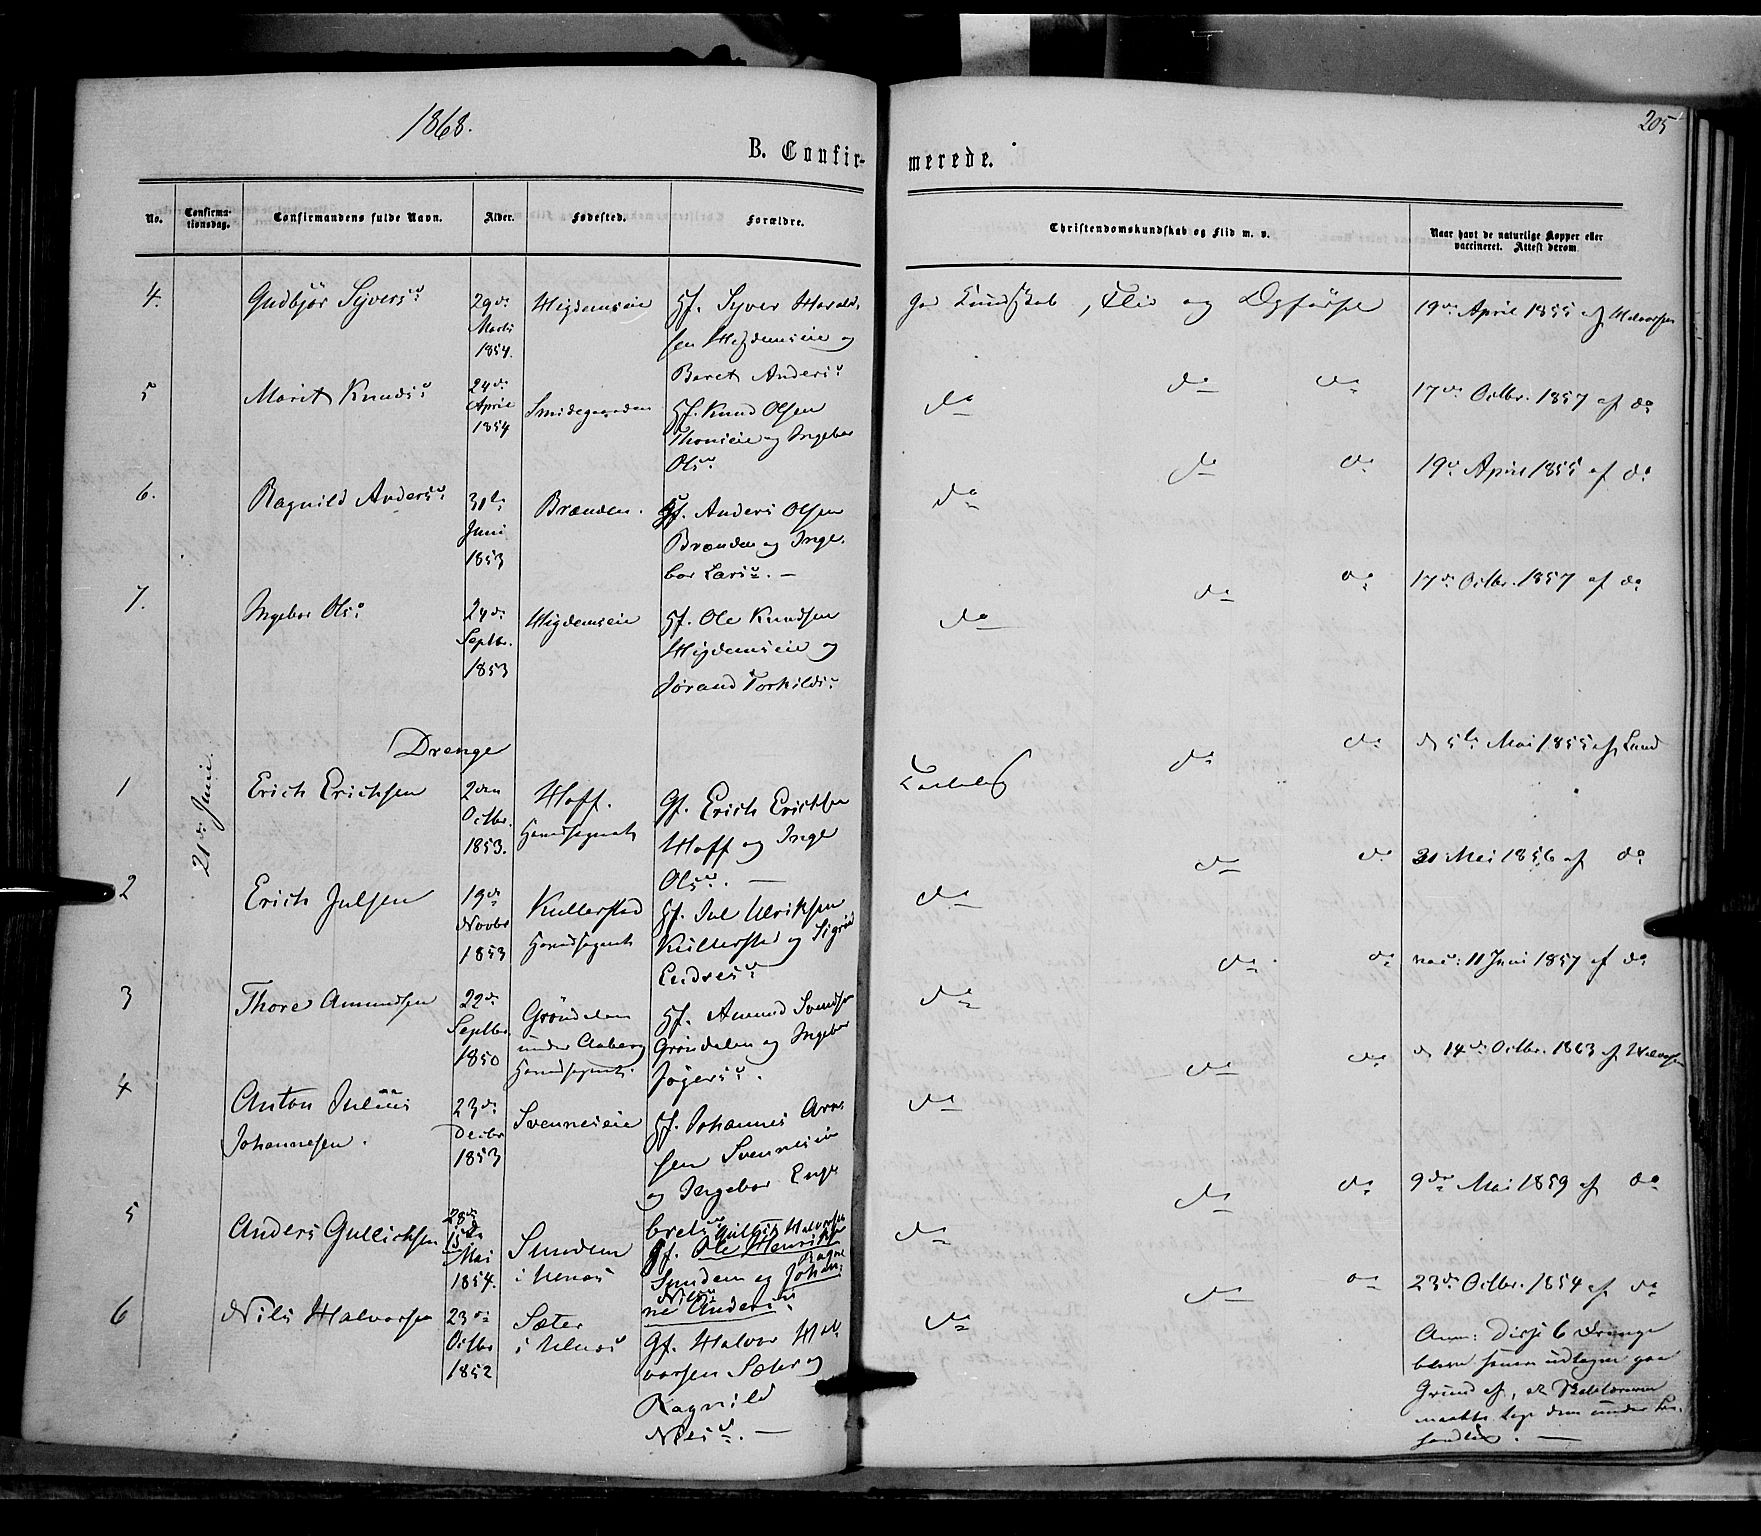 1868.
205
B. Confir-
merede.
No.
Confirma-
tionsdag.
Confirmandens fulde Navn.
Alder.
Fødested.
Forældre.
Christendomskundskab og Flid m. v.
Naar havt de naturlige Kopper eller
vaccineret. Attest derom.
4. Gudbjør Syversd 29de Higdemseie Gf. Syver Harald- god Kundskab, Flid og Opførsel 19de April 1855 af Halvorsen
Marts sen Higdemseie og
1854. Beret Andersd
5 Marit Knudsd 24de Smidegaarden Gf. Knud Olsen do do do 17de Octbr. 1857 af do
April Thonseie og Ingebor
1854 Olsd.
6. Ragnild Andersd 31te Brænden. Gf. Anders Olsen do do do 19de April 1855 af do
Juni Brænden og Inge-
1853 bor Larsd. —
7. Ingebor Olsd 24de Higdemseie Gf. Ole Knudsen do do do 17de Octbr. 1857 af do
Septbr. Higdemseie og
1853 Jørand Torkildsd
21de Juni.
Drenge
1 Erich Erichsen 2den Hoff. Gf. Erich Erichsen do do d 5te Mai 1855 af Lund
Octbr. Hoff og Inge
1853. Olsd. —
2 Erich Julsen 19de Kullerstad Gf. Jul Ulriksen do do do 31 Mai 1856 af do
Novbr Kullerstad og Sigrid
1853 Endresd
3 Thore Amundsen 22de Grøndalen Gf. Amund Svendsen do do do 11 Juni 1857 af do
Septbr under Aaberg Grøndalen og Ingebor
1850
4 Anton Julius 23de Svenneseie Gf. Johannes Arne- do do do d 14de Octbr. 1863 af Halvorsen
Johannesen. Decbr sen Svenneseie
1853 og Ingebor Enge
bretsd
5 Anders Gullichsen 28de Sundem Gullich Halvorsen do do do 9de Mai 1859 af do
15de i Ulnæs Gf. Ole Henriksen
Mai Ragne
1854. Sundem og Johan-
Nilsd
ne Andersd
6 Nils Halvorsen 23de Sæter Gf. Halvor Hal- do do do 23de Octbr. 1854 af do
Octbr i Ulnæs vorsen Sæter og
1852 Ragnild
Nilsd. —
Anm: Disse 6 Drenge
bleve udtagne paa
Grund af, at
maatte tage dem under